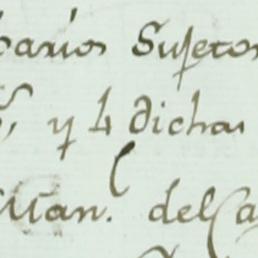 barios Sujetos
y 4 dichas
Man. del Ca